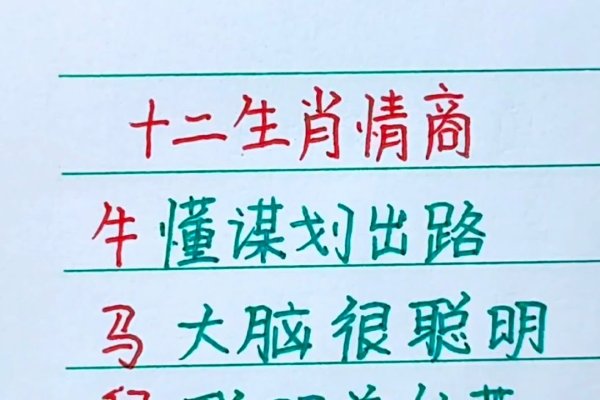 十二生肖情商
牛懂谋划出路
马大脑很聪明